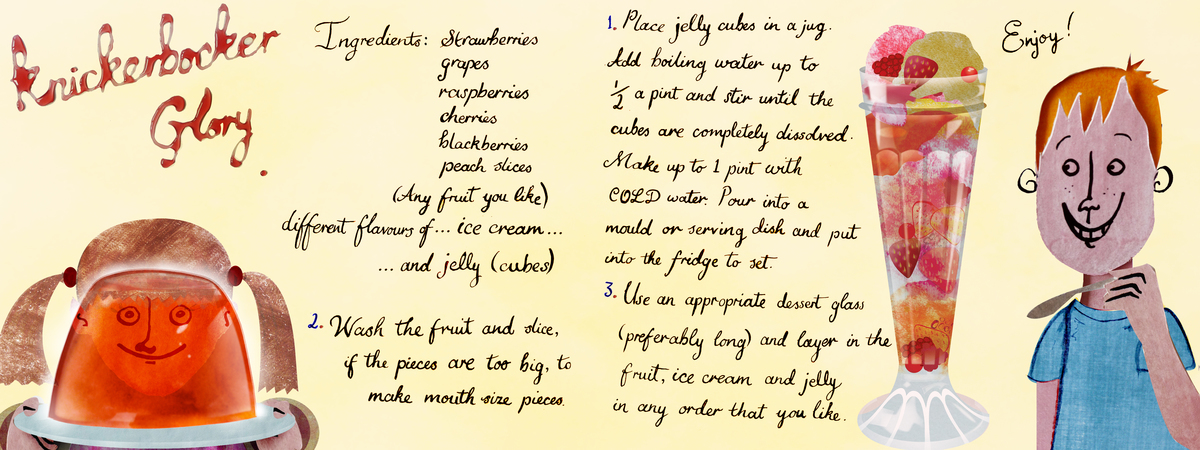 Knickerbocker
Glory.
Ingredients: Strawberries
grapes
raspberries
cherries
blackberries
peach slices
(Any fruit you like)
different flavours of... ice cream...
... and jelly (cubes)
2. Wash the fruit and slice,
if the pieces are too big, to
make mouth-size pieces.
1. Place jelly cubes in a jug.
Add boiling water up to
1/2 a pint and stir until the
cubes are completely dissolved.
Make up to 1 pint with
COLD water. Pour into a
mould or serving dish and put
into the fridge to set.
3. Use an appropriate dessert glass
(preferably long) and layer in the
fruit, ice cream and jelly
in any order that you like.
Enjoy!